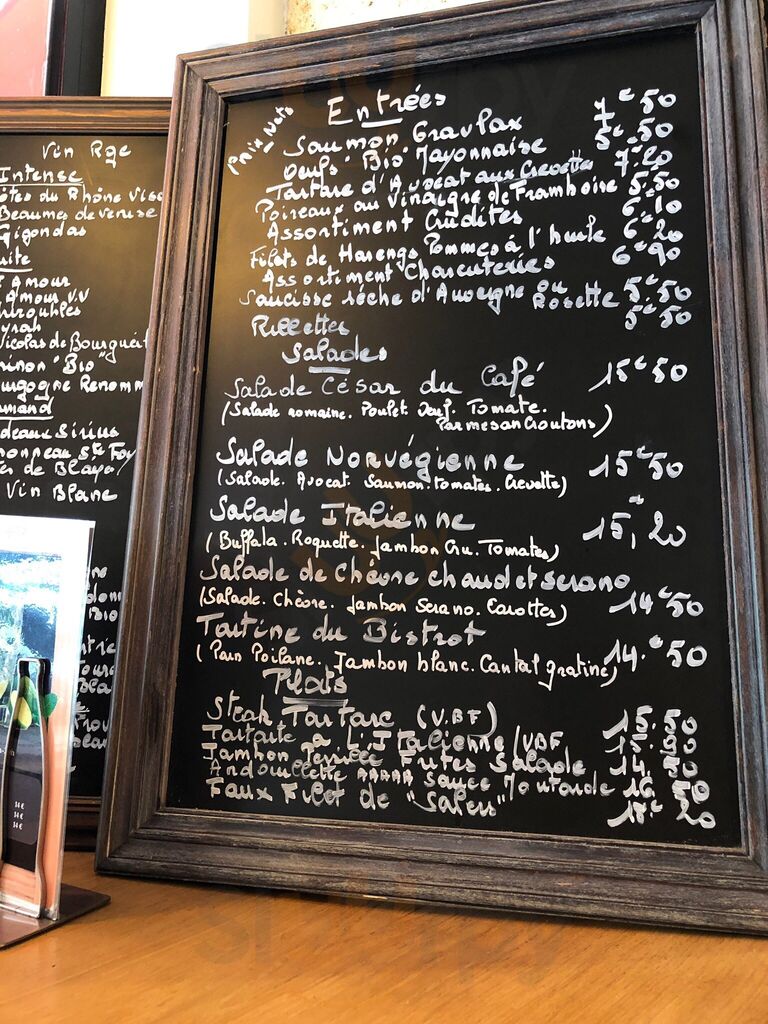 Vin Rge
Intense
Côtes du Rhône Viso
Beaumes de venise
Gigondas
uite
Amour
Amour V.V
ntroubles
yrah
Nicolas de Bourgueil
inon "Bio"
urgogne Renomm
rmand
deaux Sirius
es de Blaye
Vin Blanc
Prix Nets
Entrées
Saumon Gravlax 7€50
Oeufs "Bio" Mayonnaise 5€50
Tartare d'Avocat aux Crevettes 7.20
Poireaux au Vinaigre de Framboise 5.50
Assortiment Crudités 6€10
Filets de Harengs Pommes à l'huile 6€20
Assortiment Charcuteries 6€90
Saucisse sèche d'Auvergne ou Rosette 5€50
Rillettes 5€50
Salades
Salade César du Café 15€50
(Salade romaine. Poulet. Oeuf. Tomate.
Parmesan Croutons)
Salade Norvégienne 15€50
(Salade. Avocat. Saumon. tomates. Crevette)
Salade Italienne 15,20
(Buffala. Roquette. Jambon Cru. Tomates)
Salade de Chèvre chaud et serano
(Salade. Chèvre. Jambon Serano. Carottes) 14€50
Tartine du Bistrot
(Pain Poilane. Jambon blanc. Cantal gratiné) 14.€50
Plats
Steak Tartare (V.BF) 15.50
Tartare à L'Italienne (VBF 15.90
Jambon Grillé Frites Salade 14.50
Andouillette AAAAA Sauce Moutarde 16.
Faux Filet de "Salers" 18.€20